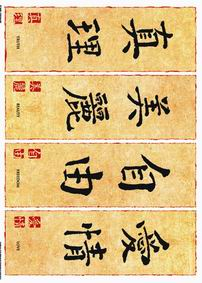 真理
真理
TRUTH
美麗
美麗
BEAUTY
自由
自由
FREEDOM
愛情
愛情
LOVE